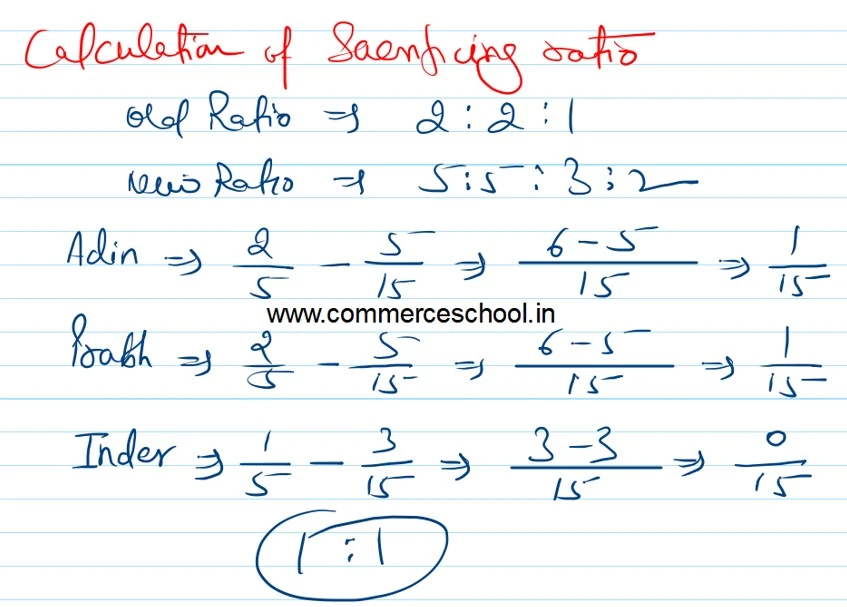 Calculation of Sacrificing ratio
Old Ratio ⇒ 2 : 2 : 1
New Ratio ⇒ 5 : 5 : 3 : 2
Adin ⇒ 2/5 − 5/15 ⇒ 6 − 5/15 ⇒ 1/15
www.commerceschool.in
Prabh ⇒ 2/5 − 5/15 ⇒ 6 − 5/15 ⇒ 1/15
Inder ⇒ 1/5 − 3/15 ⇒ 3 − 3/15 ⇒ 0/15
1 : 1